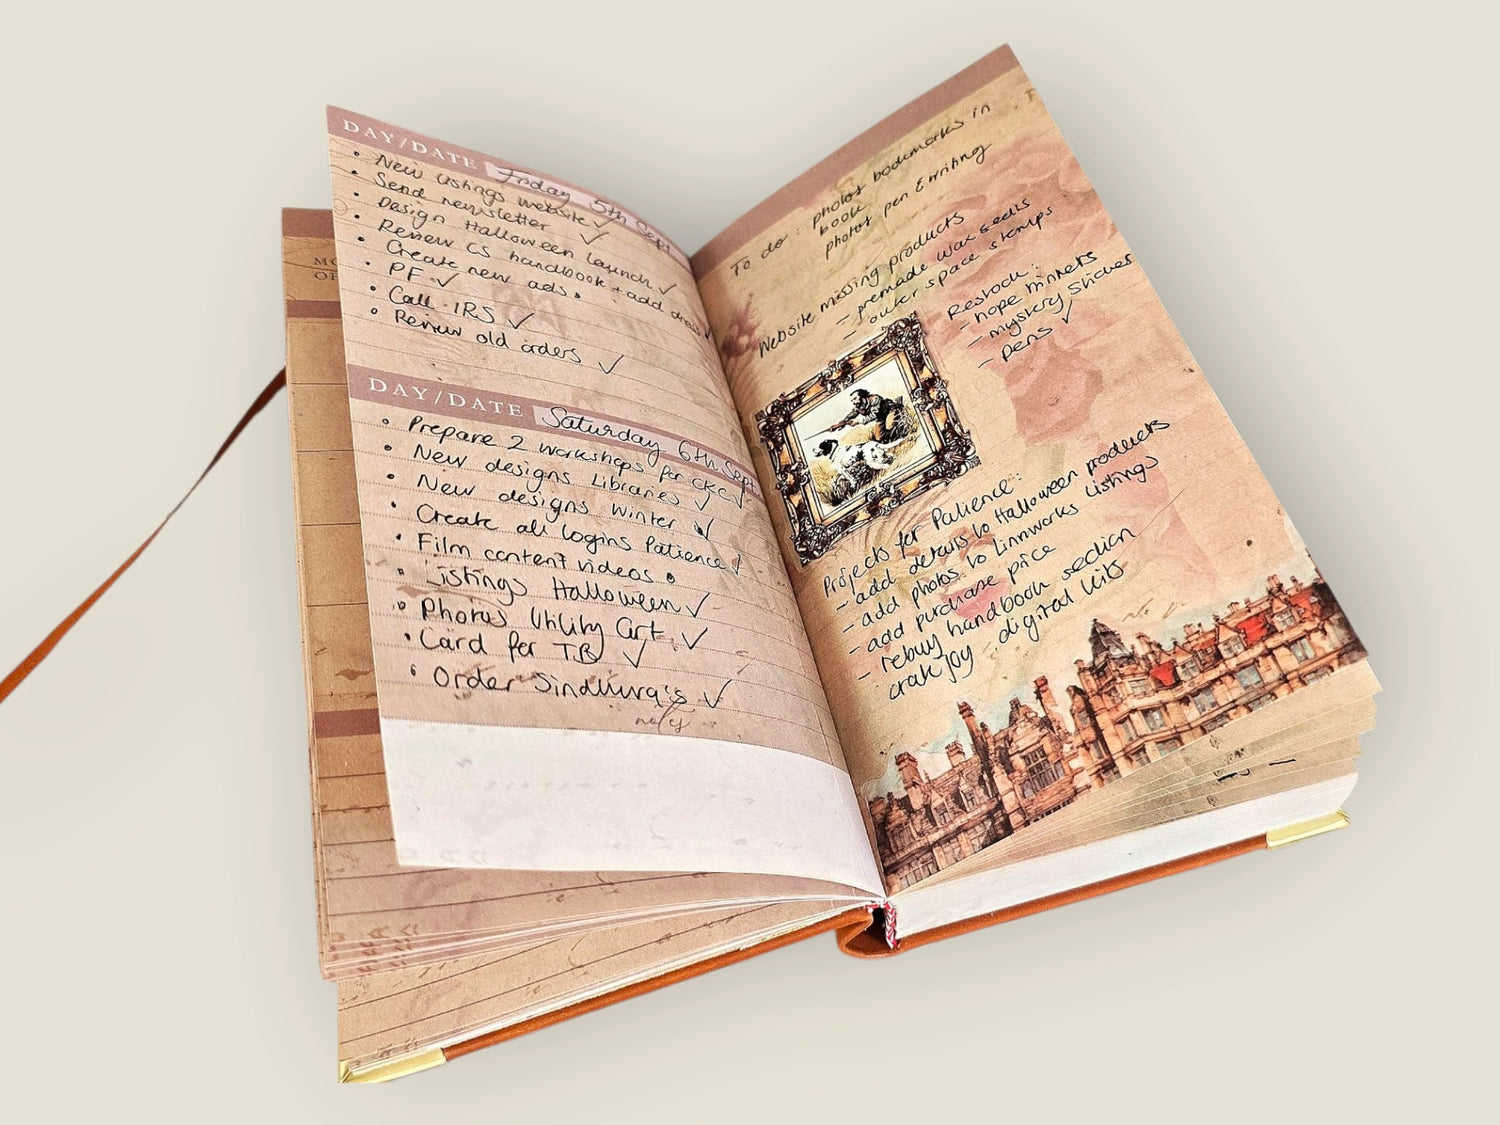 DAY/DATE Friday 5th Sept
• New listings website ✓
• Send newsletter ✓
• Design Halloween launch ✓
• Review CS handbook + add
• Create new ads •
• PF ✓
• Call IRS ✓
• Review old orders ✓
DAY/DATE Saturday 6th Sept
• Prepare 2 workshops for CKC ✓
• New designs Libraries ✓
• New designs Winter ✓
• Create all logins Patience ✓
• Film content videos •
• Listings Halloween ✓
• Photos Utility Cart ✓
• Card for TB ✓
• Order Sindhura's ✓
MO
OF
To do: photos bookmarks in
book
photos pen & writing
Website missing products
- premade wax seals
- outer space stamps
Restock:
- hope trinkets
- mystery sticker
- pens ✓
Projects for Patience:
- add details to Halloween products
- add photos to Linnworks listings
- add purchase price
- rebuy handbook section
craft joy digital kits